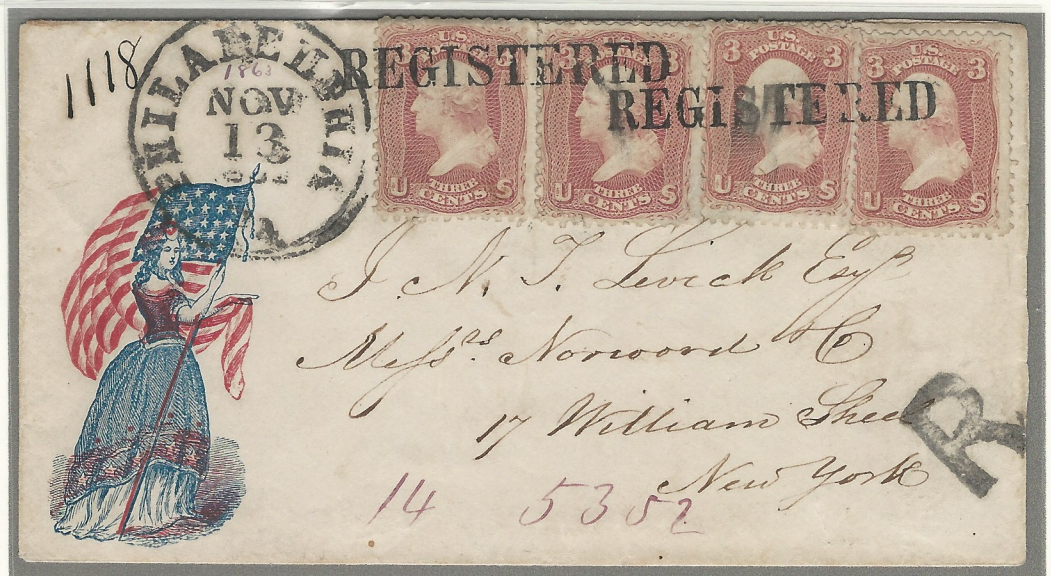 1118
PHILADELPHIA
1863
NOV
13
PA
REGISTERED
REGISTERED
U.S. 3 POSTAGE 3 U THREE CENTS S
U.S. 3 POSTAGE 3 U THREE CENTS S
U.S. 3 POSTAGE 3 U THREE CENTS S
U.S. 3 POSTAGE 3 U THREE CENTS S
J. N. T. Levick Esqr
Messrs Norwood & Co
17 William Street
New York
R
14 5352